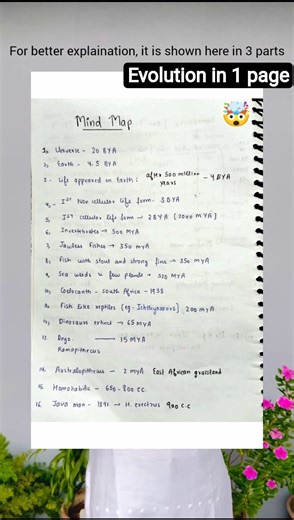 For better explaination, it is shown here in 3 parts
Evolution in 1 page
Mind Map
1. Universe - 20 BYA
2. Earth - 4.5 BYA
3. Life appeared on Earth : after 500 million years - 4 BYA
4. Ist Non cellular life form - 3 BYA
5. Ist cellular life form - 2 BYA (2000 MYA)
6. Invertebrates → 500 MYA
7. Jawless fishes → 350 mYA
8. Fish with stout and strong fins → 350 MYA
9. Sea weeds & few plants → 320 MYA
10. Coelocanth - South Africa - 1938
11. Fish like reptiles (eg - Ichthyosaurs) 200 MYA
12. Dinosaurs extinct → 65 MYA
13. Dryo. → 15 MYA
Ramapithecus
14. Australopithecus - 2 mYA East African grassland
15. Homohabilis - 650 - 800 c.c.
16. Java man - 1891 → H. erectus 900 c.c